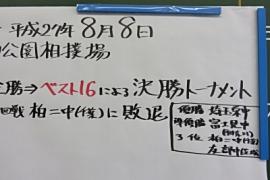 平成27年8月8日
公園相撲場
勝⇒ベスト16による決勝トーナメント
回戦 柏二中(千葉)に敗退
優勝 埼玉栄中
準優勝 富士見中
3位 柏二中(千葉)